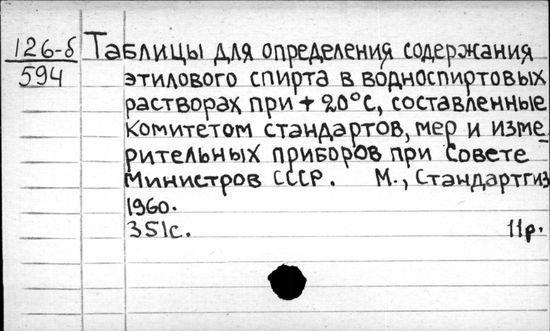 126-б
594
Таблицы для определения содержания
этилового спирта в водноспиртовых
растворах при + 20°С, составленные
Комитетом стандартов, мер и изме-
рительных приборов при Совете
Министров СССР. М., Стандартгиз
1960.
351с. 11р.